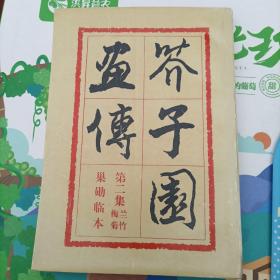 芥子園
畫傳
第二集 兰竹梅菊
巢勋临本
的葡萄
甜